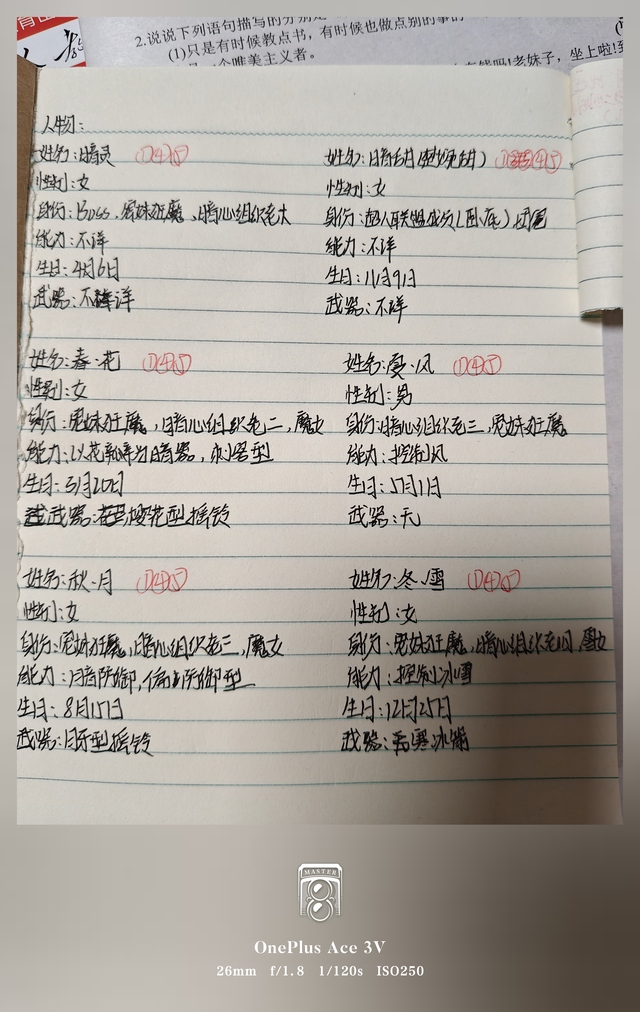 2.说说下列语句描写的分别是
(1)只是有时候教点书,有时候也做点别的事的
个唯美主义者。
老妹子,坐上啦!
人物:
姓名:暗灵 ①④⑤
性别:女
身份:Boss,宠妹狂魔,暗心组织老大
能力:不详
生日:4月6日
武器:不详
姓名:暗甜
性别:女
身份:超人联盟成员(卧底)
能力:不详
生日:11月9日
武器:不详
姓名:春·花 ①④⑤
性别:女
身份:宠妹狂魔,暗心组织老二,魔女
能力:以花瓣为暗器,刺客型
生日:3月20日
武器:樱花型摇铃
姓名:夏·风 ①④⑤
性别:男
身份:暗心组织老三,宠妹狂魔
能力:控制风
生日:5月1日
武器:无
姓名:秋·月 ①④⑤
性别:女
身份:宠妹狂魔,暗心组织老三,魔女
能力:月暗防御,偏防御型
生日:8月15日
武器:月牙型摇铃
姓名:冬·雪 ①④⑤
性别:女
身份:宠妹狂魔,暗心组织老四,雪女
能力:控制冰雪
生日:12月25日
武器:寒冰
MASTER
OnePlus Ace 3V
26mm f/1.8 1/120s ISO250